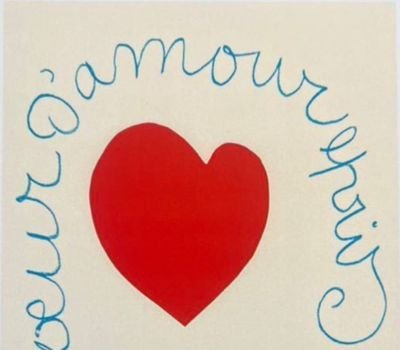 oeur d'amour épris